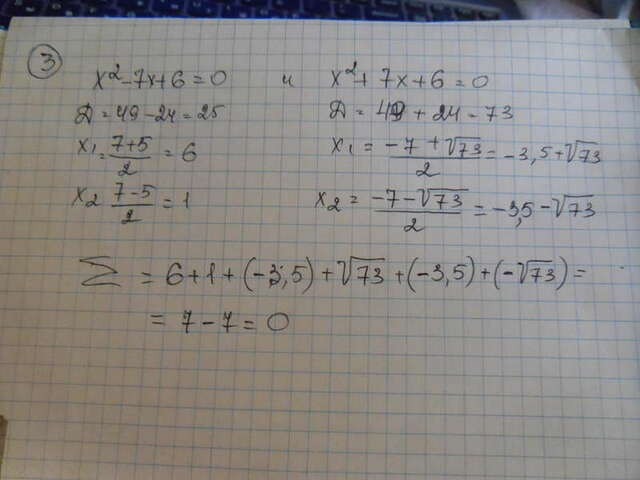 3
x² - 7x + 6 = 0 и x² + 7x + 6 = 0
D = 49 - 24 = 25 D = 49 + 24 = 73
x₁ = (7+5)/2 = 6 x₁ = (-7 + √73)/2 = -3,5 + √73
x₂ (7-5)/2 = 1 x₂ = (-7 - √73)/2 = -3,5 - √73
Σ = 6 + 1 + (-3,5) + √73 + (-3,5) + (-√73) =
= 7 - 7 = 0